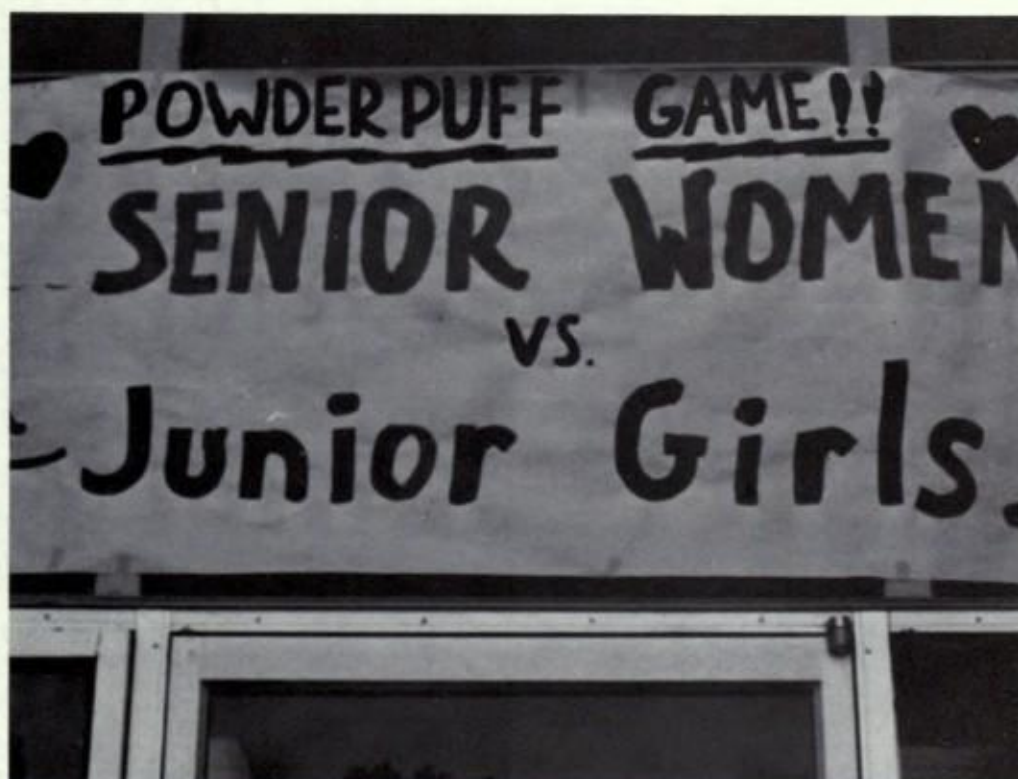 POWDERPUFF GAME!!
SENIOR WOMEN
VS.
Junior Girls